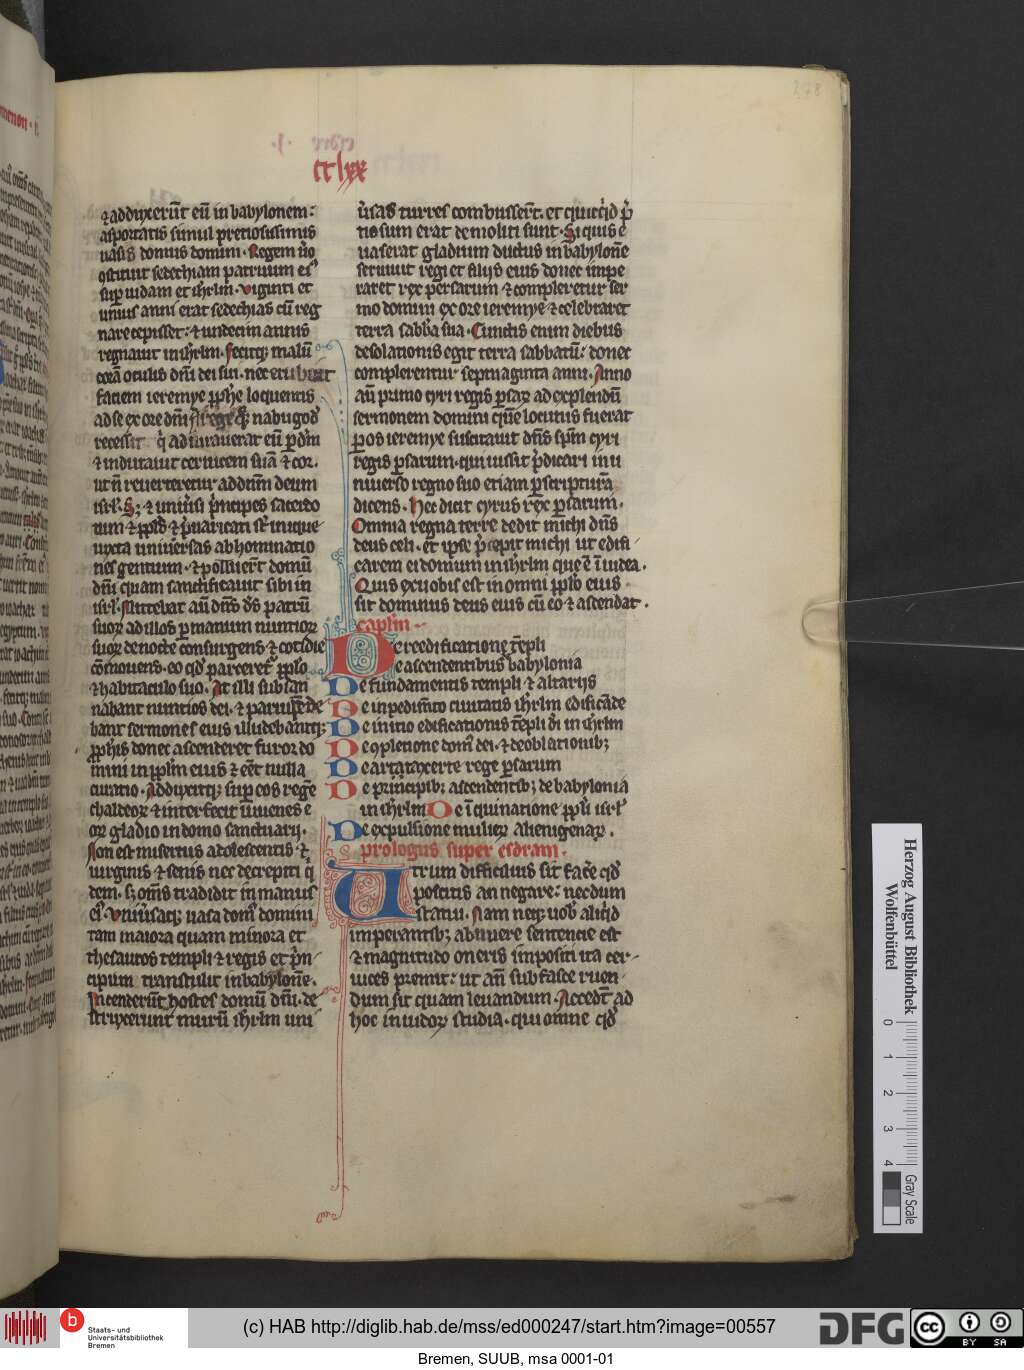 cclxx
⁊ adduxerūt eū in babylonem:
asportatis simul preciosissimis
uasis domus domini. Regem u̾o
ꝯstituit sedechiam patruum ei᷒
sup iudam et ihrlm. viginti et
unius anni erat sedechias cū reg
nare cepisset: ⁊ undecim annis
regnauit in ihrlm. fecitq; malū
corā oculis dn̄i dei sui. nec erubuit
faciem ieremye ꝓph̄e loquentis
ad se ex ore dn̄i. A rege q̄; nabugod̾
recessit qͥ adiurauerat eū ꝑ dm̄
⁊ indurauit ceruicem suā ⁊ cor.
ut n̄ reuerteretur ad dn̄m deum
isrl̾. S; ⁊ uniu̾si pͥncipes sacerdo
tum ⁊ ppl̄s ⁊ p̾uaricati st̄ inique
iuxta uniuersas abhominatio
nes gentium. ⁊ polluer̄t domū
dn̄i quam sanctificauit sibi in
isrl̾. Mittebat aū dn̄s d̄s patrū
suoꝝ ad illos ꝑ manum nuntioꝝ
suoꝝ de nocte ꝯsurgens ⁊ cotidie
cōmouens. eo qd̾ parceret pplo
⁊ habitaculo suo. At illi subsan
nabant nuntios dei. ⁊ paruipēde
bant sermones eius illudebantq;
ꝓphis donec ascenderet furor do
mini in pplm eius ⁊ eēt nulla
curatio. Adduxitq; sup eos regē
chaldeoꝝ ⁊ interfecit iuuenes e
oꝝ gladio in domo sanctuarij.
Non est misertus adolescentis ⁊
uirginis ⁊ senis nec decrepiti qͥ
dem. s; om̄s tradidit in manus
ei᷒. Vniu̾saq; uasa dom᷒ domini
tam maiora quam minora et
thesauros templi ⁊ regis et pͥn
cipum transtulit in babylonē.
Incenderūt hostes domū dn̄i. de
struxerunt murū ihrlm uni
u̾sas turres combusser̄t. et quicqͥd p̄
tiosum erat demoliti sunt. Si quis e
uaserat gladium ductus in babylonē
seruiuit regi et filijs eius donec impe
raret rex persarum ⁊ compleretur ser
mo domini ex ore ieremye ⁊ celebraret
terra sabb̄a sua. Cunctis enim diebus
desolationis egit terra sabbatū: donec
complerentur septuaginta anni. Anno
aū primo cyri regis ꝑsaꝝ ad explendū
sermonem domini quē locutus fuerat
ꝑ os ieremye suscitauit dn̄s spm̄ cyri
regis ꝑsarum. qui iussit p̾dicari in u
niuerso regno suo etiam ꝑ scripturā
dicens. Hec dicit cyrus rex ꝑsarum.
Omnia regna terre dedit michi dn̄s
deus celi. et ipse p̾cepit michi ut edifi
carem ei domum in ihrlm que ē ī iudea.
Quis ex uobis est in omni pplo eius
sit dominus deus eius cū eo ⁊ ascendat.
caplm
De reedificatione tēpli
De ascendentibus babylonia
De fundamentis templi ⁊ altarijs
De inpedim̄to ciuitatis ihrlm edificāde
De initio edificationis tēpli di in ihrlm
De ꝯpletione dom᷒ dei. ⁊ de oblationib;
De artarxerxe rege ꝑsarum
De principib; ascendentib; de babylonia
in ihrlm De īquinatione ppli isrl̾
De expulsione mulieꝝ alienigenaꝝ.
prologus super esdram.
Vtrum difficilius sit facē qd̾
poscitis an negare: necdum
statui. Nam neq; uob̾ aliqͥd
imperantib; abnuere sentencie est
⁊ magnitudo oneris impositi ita cer
uices premit: ut an̄ sub fasce ruen
dum sit quam leuandum. Accedūt ad
hoc inuidoꝝ studia. qui omne qd̾
Herzog August Bibliothek
Wolfenbüttel
0 1 2 3 4
Gray Scale
b
Staats- und
Universitätsbibliothek
Bremen
(c) HAB http://diglib.hab.de/mss/ed000247/start.htm?image=00557
DFG
cc
BY SA
Bremen, SUUB, msa 0001-01